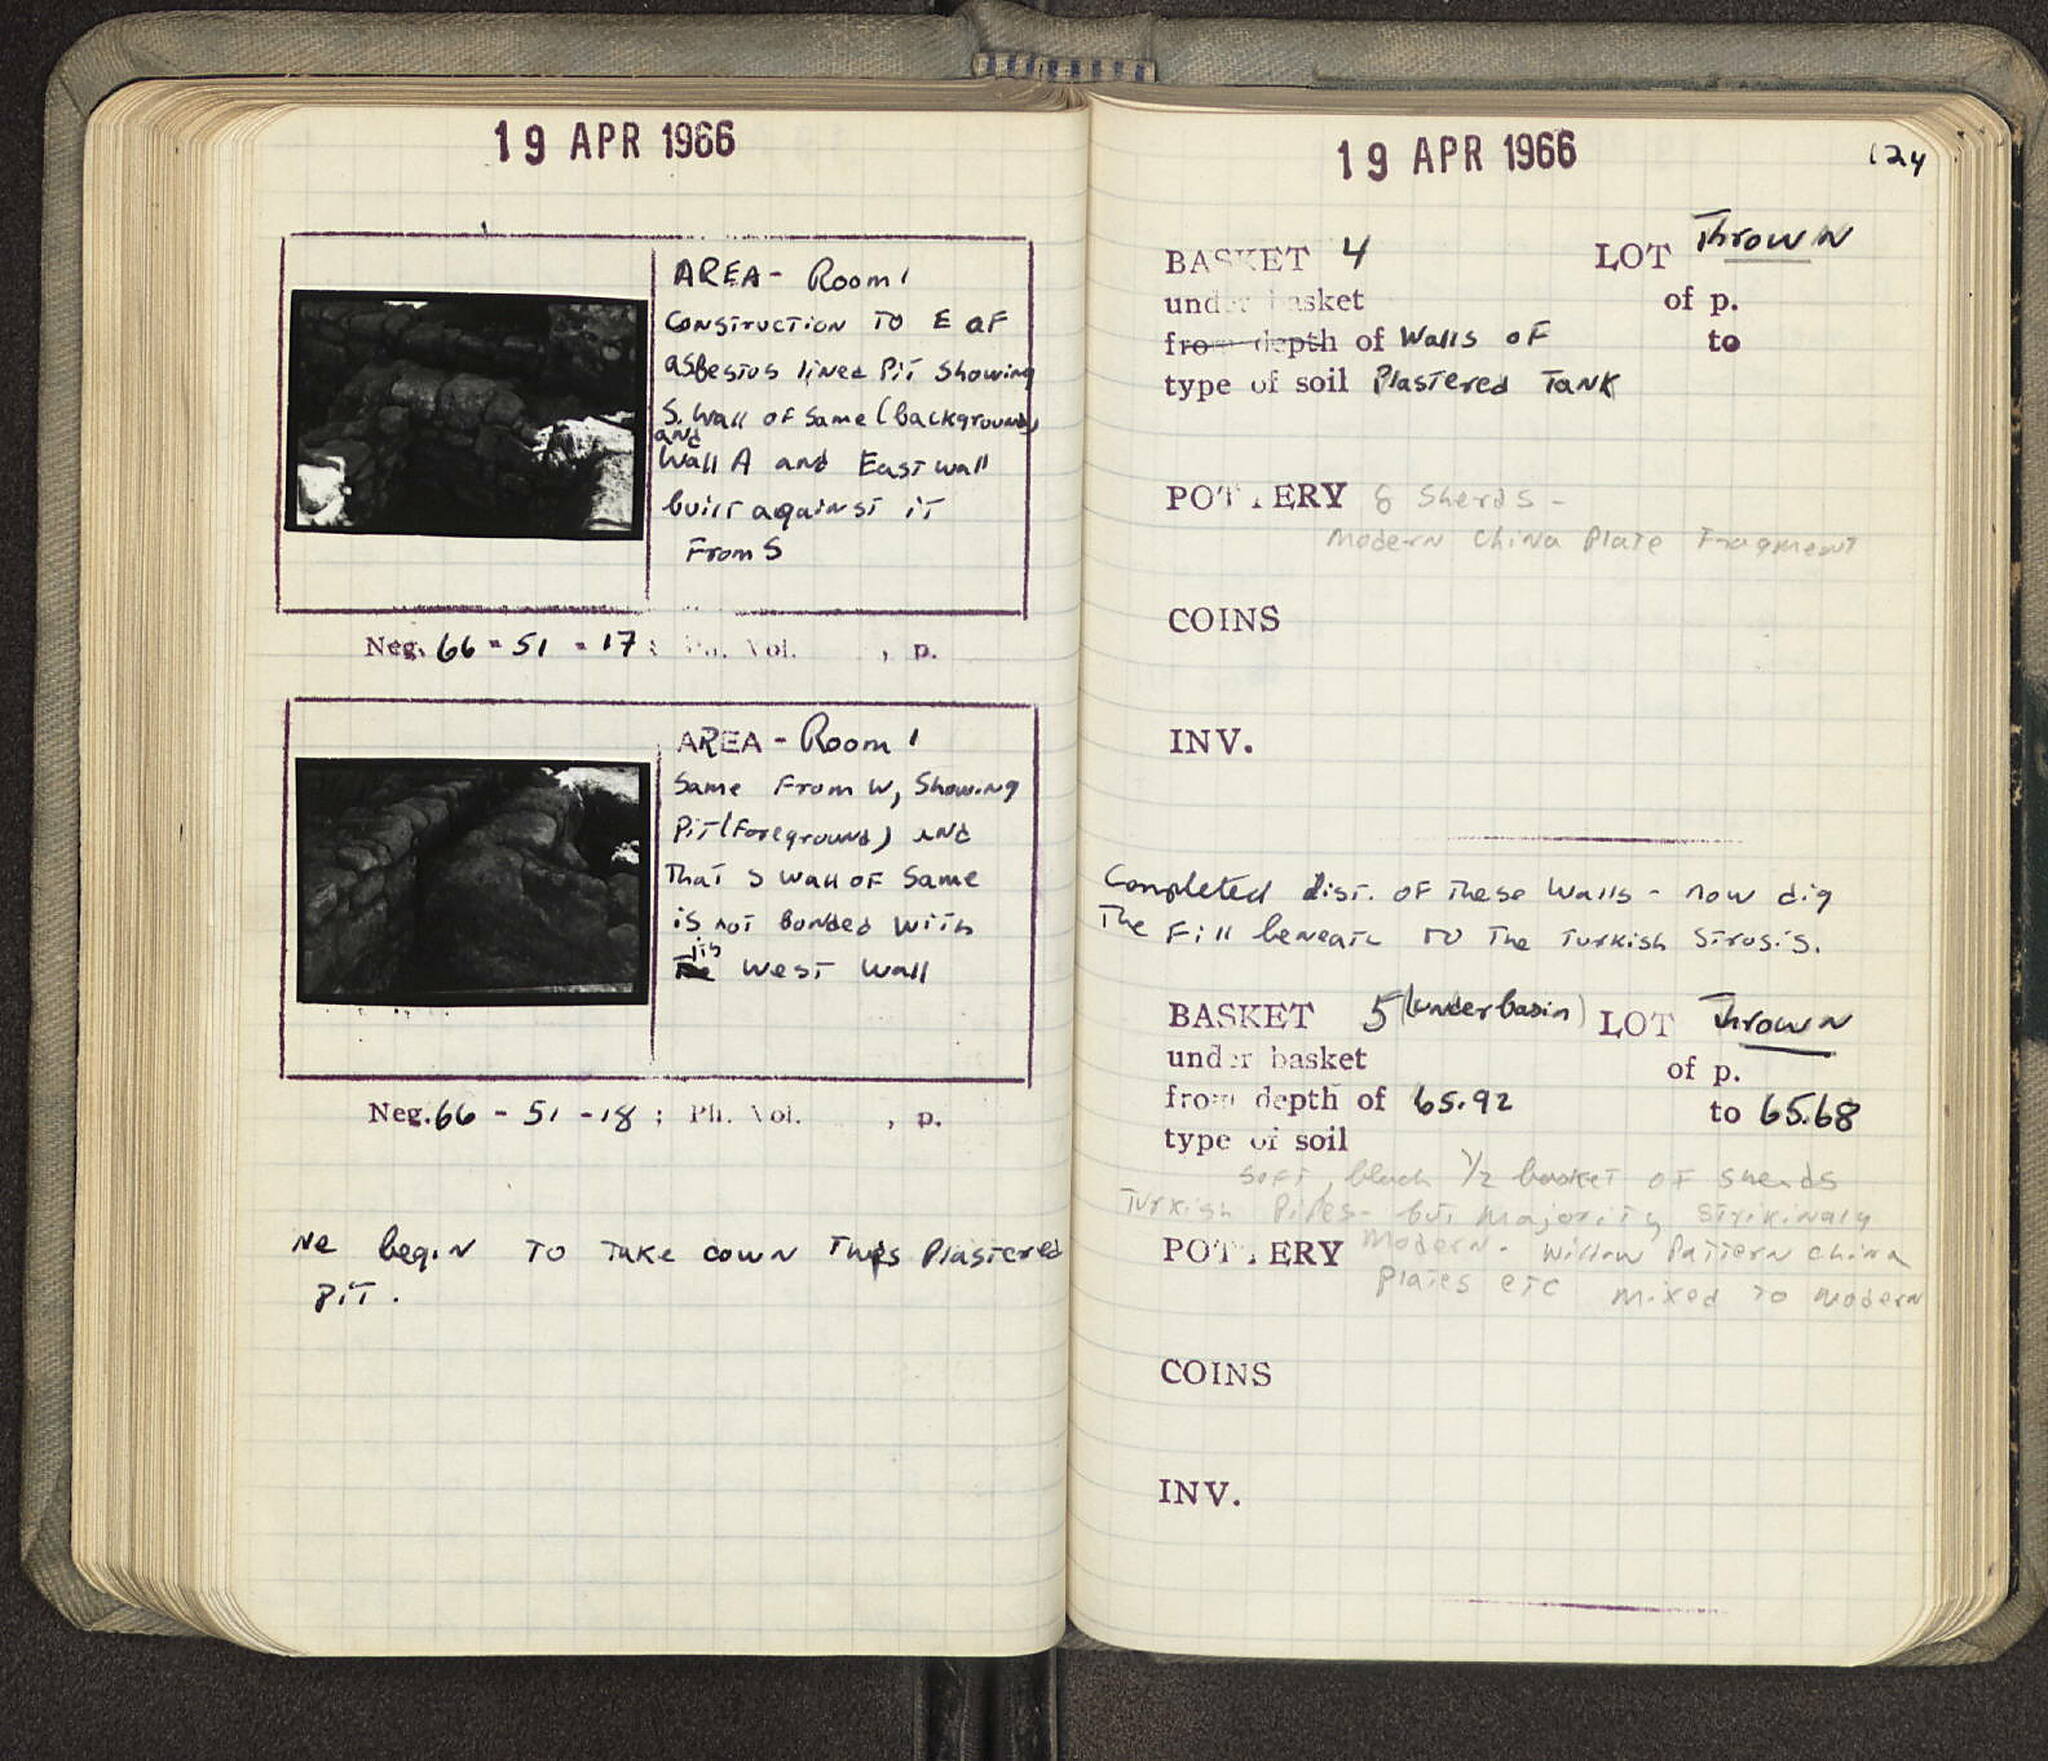 19 APR 1966
AREA - Room 1
Construction to E of
asbestos lined Pit showing
S. Wall of Same (background)
and
Wall A and East wall
built against it
From S
Neg. 66 - 51 - 17 ; Ph. Vol. , p.
AREA - Room 1
Same From W, Showing
Pit (Foreground) and
That S Wall of Same
is not bonded with
its
The West Wall
Neg. 66 - 51 - 18 ; Ph. Vol. , p.
We begin to take down this Plastered
Pit.
19 APR 1966
124
BASKET 4 LOT Thrown
under basket of p.
from depth of Walls of to
type of soil Plastered Tank
POTTERY 8 Sherds -
Modern China Plate Fragment
COINS
INV.
Completed dist. of These Walls - now dig
The Fill beneath to The Turkish Strosis.
BASKET 5 (under basin) LOT Thrown
under basket of p.
from depth of 65.92 to 65.68
type of soil
soft, black 1/2 basket of sherds
Turkish Pipes - but majority strikingly
POTTERY Modern - Willow Pattern China
Plates etc mixed to modern
COINS
INV.